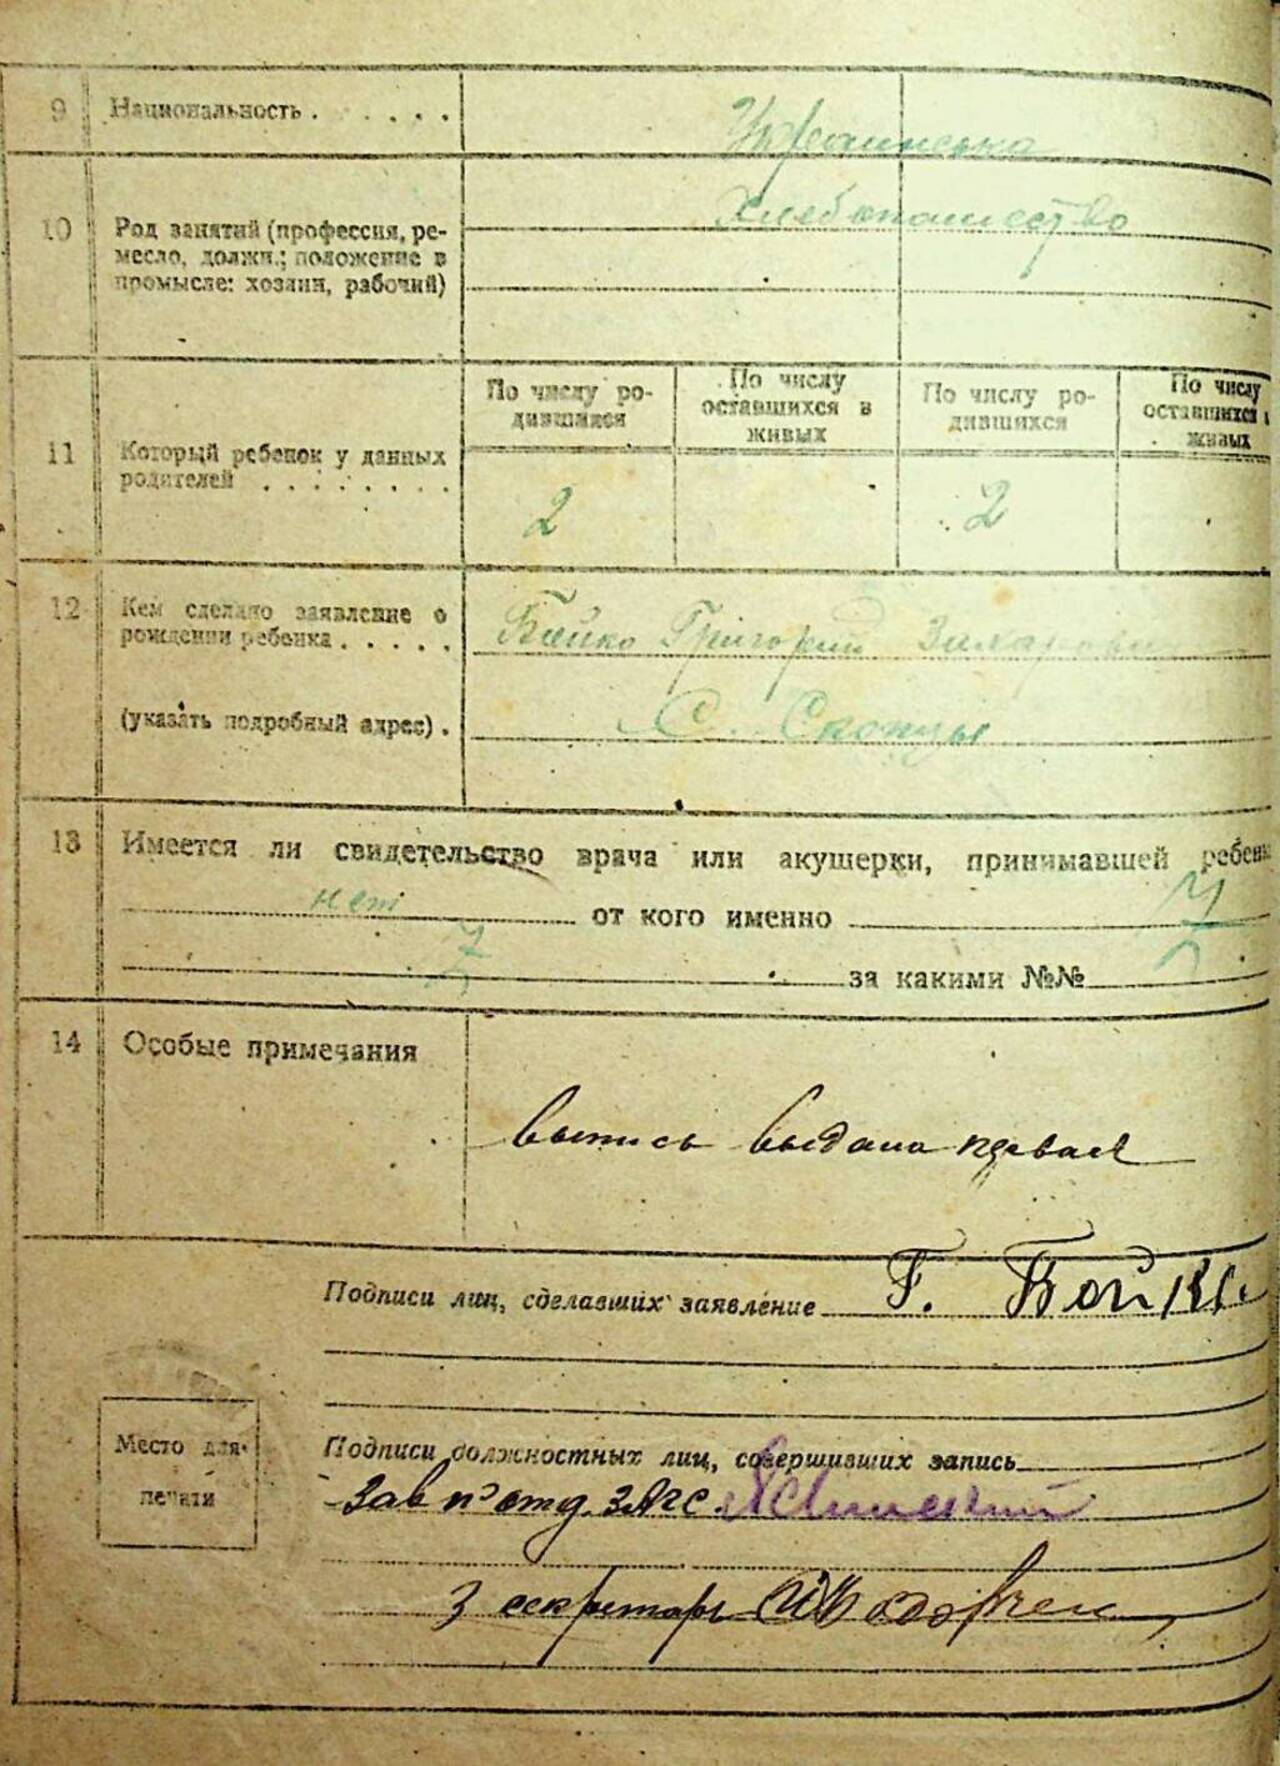 9 Национальность . . . . . Украинська
10 Род занятий (профессия, ре-
месло, должн.; положение в
промысле: хозяин, рабочий)
Хлебопашество
По числу ро-
дившихся
По числу
оставшихся в
живых
По числу ро-
дившихся
По числу
оставшихся в
живых
11 Который ребенок у данных
родителей . . . . . . . .
2 2
12 Кем сделано заявление о
рождении ребенка . . . . .
Бойко Григорий Захарович
(указать подробный адрес) . С. Скопцы
13 Имеется ли свидетельство врача или акушерки, принимавшей ребен
нет от кого именно
за какими №№
14 Особые примечания
выпись выдана первая
Подписи лиц, сделавших заявление Г. Бойко
Место для
печати
Подписи должностных лиц, совершивших запись
Зав п'отд. ЗАГС
З секретарь